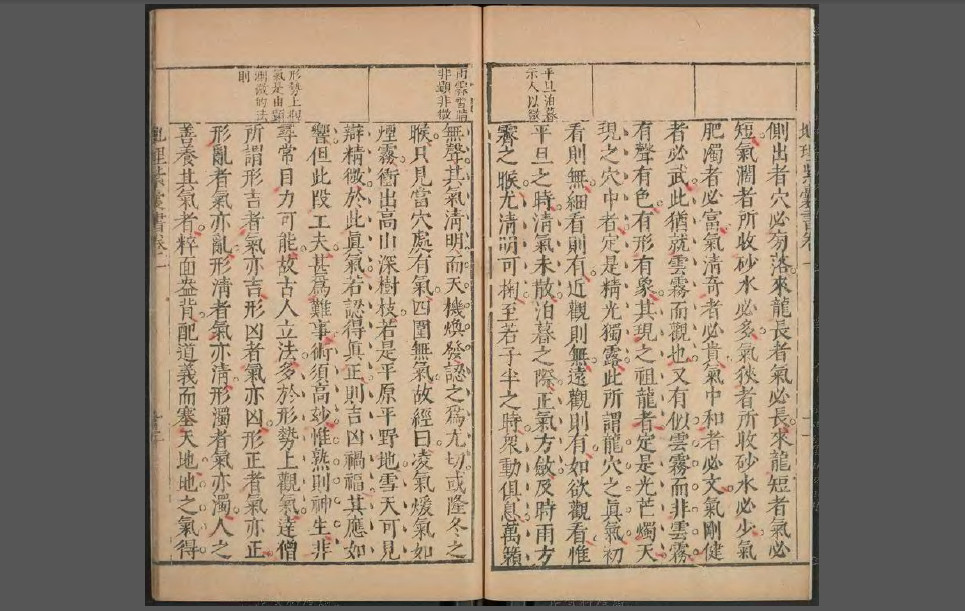 側出者穴必旁落來龍長者氣必長來龍短者氣必
短氣濶者所收砂水必多氣狹者所收砂水必少氣
肥濁者必富氣清奇者必貴氣中和者必文氣剛健
者必武此猶就雲霧而觀也又有似雲霧而非雲霧
有聲有色有形有象其現之祖龍者定是光芒燭天
現之穴中者定是精光獨露此所謂龍穴之眞氣初
看則無細看則有近觀則無遠觀則有如欲觀看惟
平旦之時清氣未散泊暮之際正氣方斂及時雨方
霽之睺尤清明可掬至若子半之時衆動俱息萬籟
平旦泊暮
示人以
無聲其氣清明而天機煥發認之爲尤切或隆冬之
睺只見當穴處有氣四圍無氣故經曰凌氣煖氣如
煙霧衝出高山深樹枝若是平原平野地雪天可見
辯精微於此眞氣若認得眞正則吉凶禍福其應如
響但此段工夫甚爲難事術須高妙惟熟則神生非
尋常目力可能故古人立法多於形勢上觀氣達僧
所謂形吉者氣亦吉形凶者氣亦凶形正者氣亦正
形亂者氣亦亂形清者氣亦清形濁者氣亦濁人之
善養其氣者粹面盎背配道義而塞天地地之氣得
非顯非微
形勢上觀
氣是由顯
測微的法
則